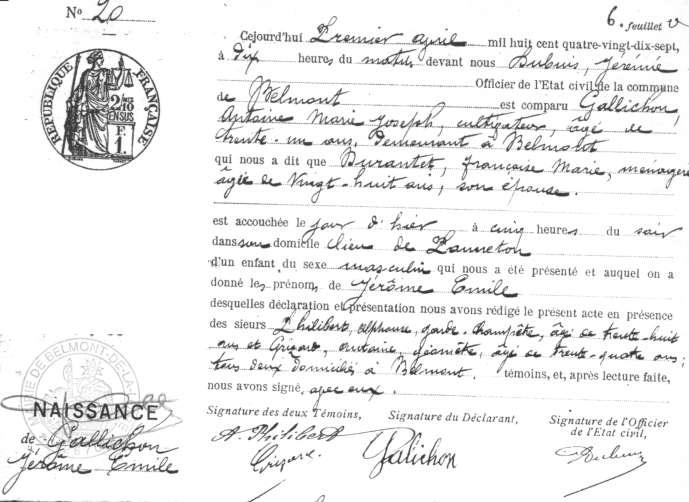 No 20
6. feuillet
RÉPUBLIQUE FRANÇAISE
2/10 EN SUS
F. 1.
Cejourd'hui Premier april mil huit cent quatre-vingt-dix-sept,
à dix heures du matin devant nous Dubuis, Jérémie
Officier de l'Etat civil de la commune
de Belmont est comparu Gallichon,
Antoine Marie Joseph, cultivateur, âgé de
trente-un ans, demeurant à Belmont
qui nous a dit que Durantet, françoise Marie, ménagère
âgée de Vingt-huit ans, son épouse.
est accouchée le jour d'hier à cinq heures du soir
dans son domicile lieu de
d'un enfant du sexe masculin qui nous a été présenté et auquel on a
donné les prénoms de Jérôme Emile
desquelles déclaration et présentation nous avons rédigé le présent acte en présence
des sieurs Philibert, alphonse, garde-champêtre, âgé de trente-huit
ans et Grizard, antoine, géomètre, âgé de trente-quatre ans;
tous deux domiciliés à Belmont. témoins, et, après lecture faite,
nous avons signé, avec eux.
Signature des deux Témoins,
Signature du Déclarant,
Signature de l'Officier
de l'Etat civil,
A. Philibert
Grizard.
Galichon
Dubuis
MAIRIE DE BELMONT-DE-LA-
NAISSANCE
de Gallichon
Jérôme Emile